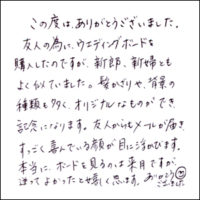 この度は、ありがとうございました。
友人の為に、ウエディングボードを
購入したのですが、新郎、新婦とも
よく似ていました。髪かざりや、背景の
種類も多く、オリジナルなものができ
記念になります。友人からもメールが届き、
すっごく喜んでいる顔が目に浮かびます。
本当に、ボードを見るのは来月ですが、
迷ってよかったと嬉しく思います。ありがとう
ございました